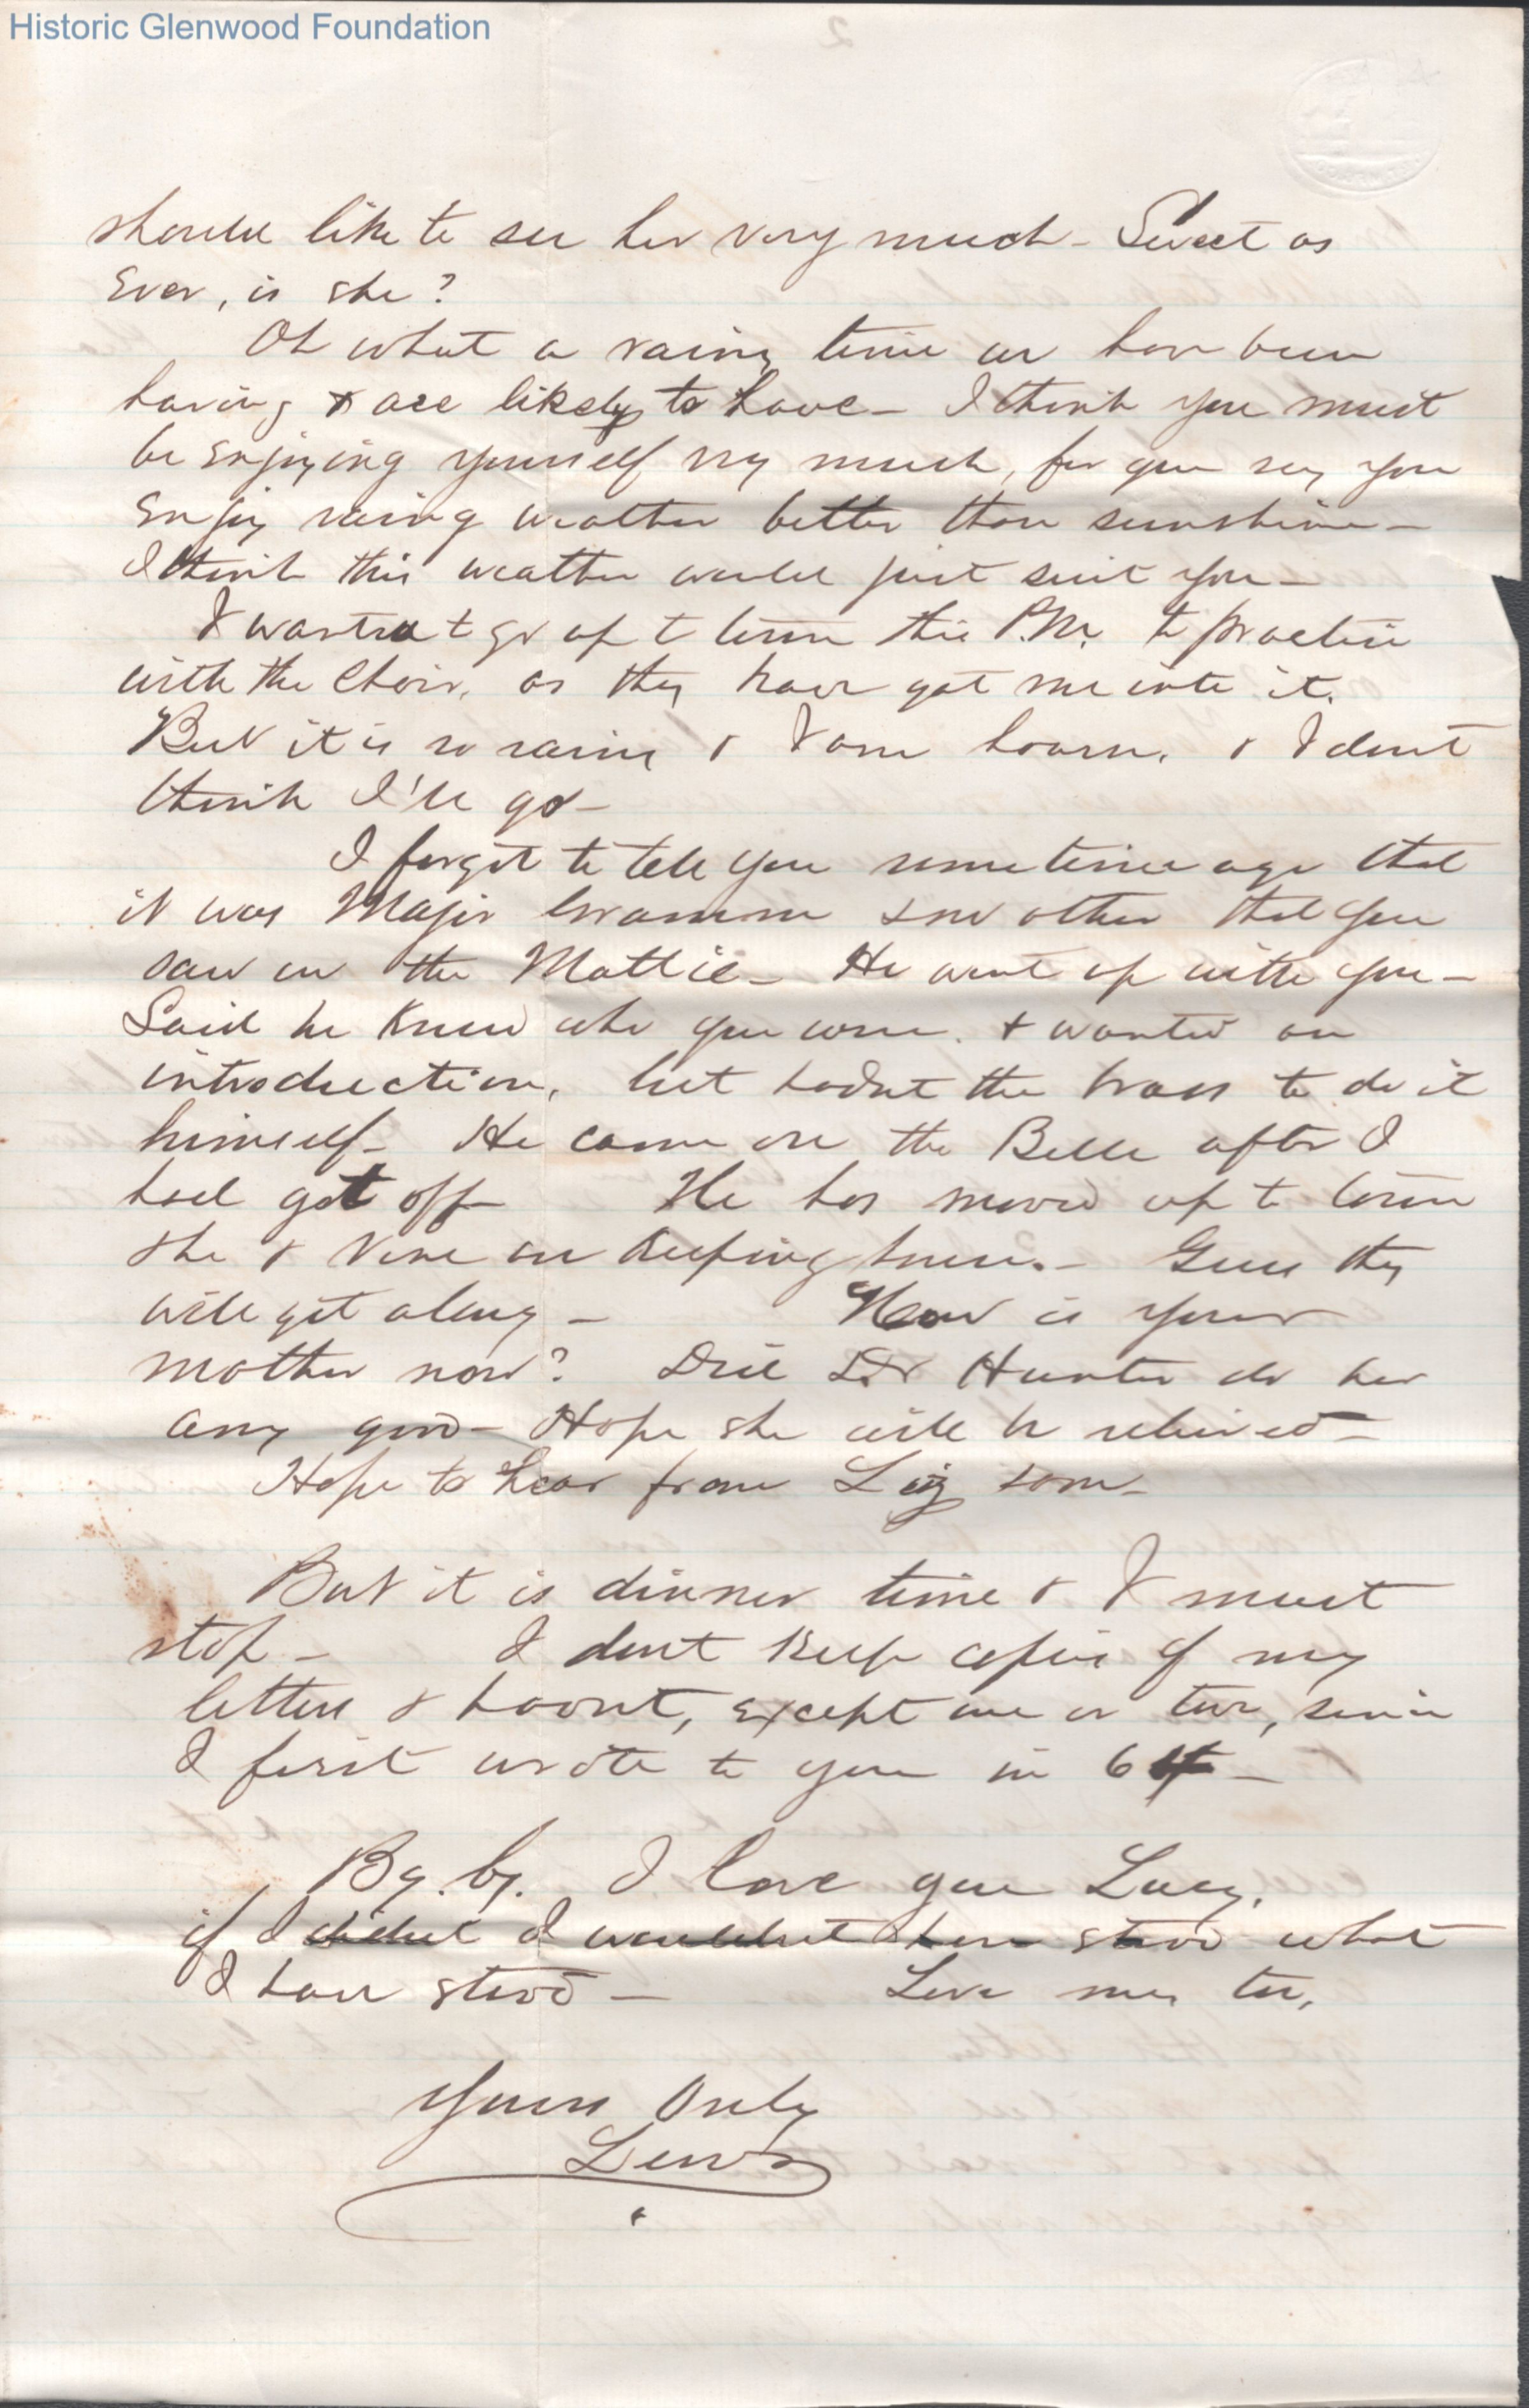 Historic Glenwood Foundation
should like to see her very much - Sweet as
Ever, is she?
Oh what a rainy time we have been
having & are likely to have - I think you must
be enjoying yourself very much, for you say you
enjoy rainy weather better than sunshine -
I think this weather would just suit you -
I wanted to go up to town this P.M. to practice
with the Choir, as they have got me into it.
But it is so rainy & I am hoarse, & I dont
think I'll go -
I forgot to tell you sometime ago that
it was Major brother that you
saw on the Mattie - He went up with you -
Said he knew who you were. & wanted an
introduction, but hadnt the brass to do it
himself - He came on the Belle after I
had got off - He has moved up to town
she & Vene are keeping house. - Guess they
will get along - How is your
mother now? Did Dr Hunter do her
any good - Hope she will be relieved -
Hope to hear from Liz soon -
But it is dinner time & I must
stop - I dont keep copies of my
letters & havnt, except one or two, since
I first wrote to you in 64 -
By. by. I love you Lucy.
if I didnt I wouldnt have stood what
I have stood - Love me, too,
Yours Only
Lewis